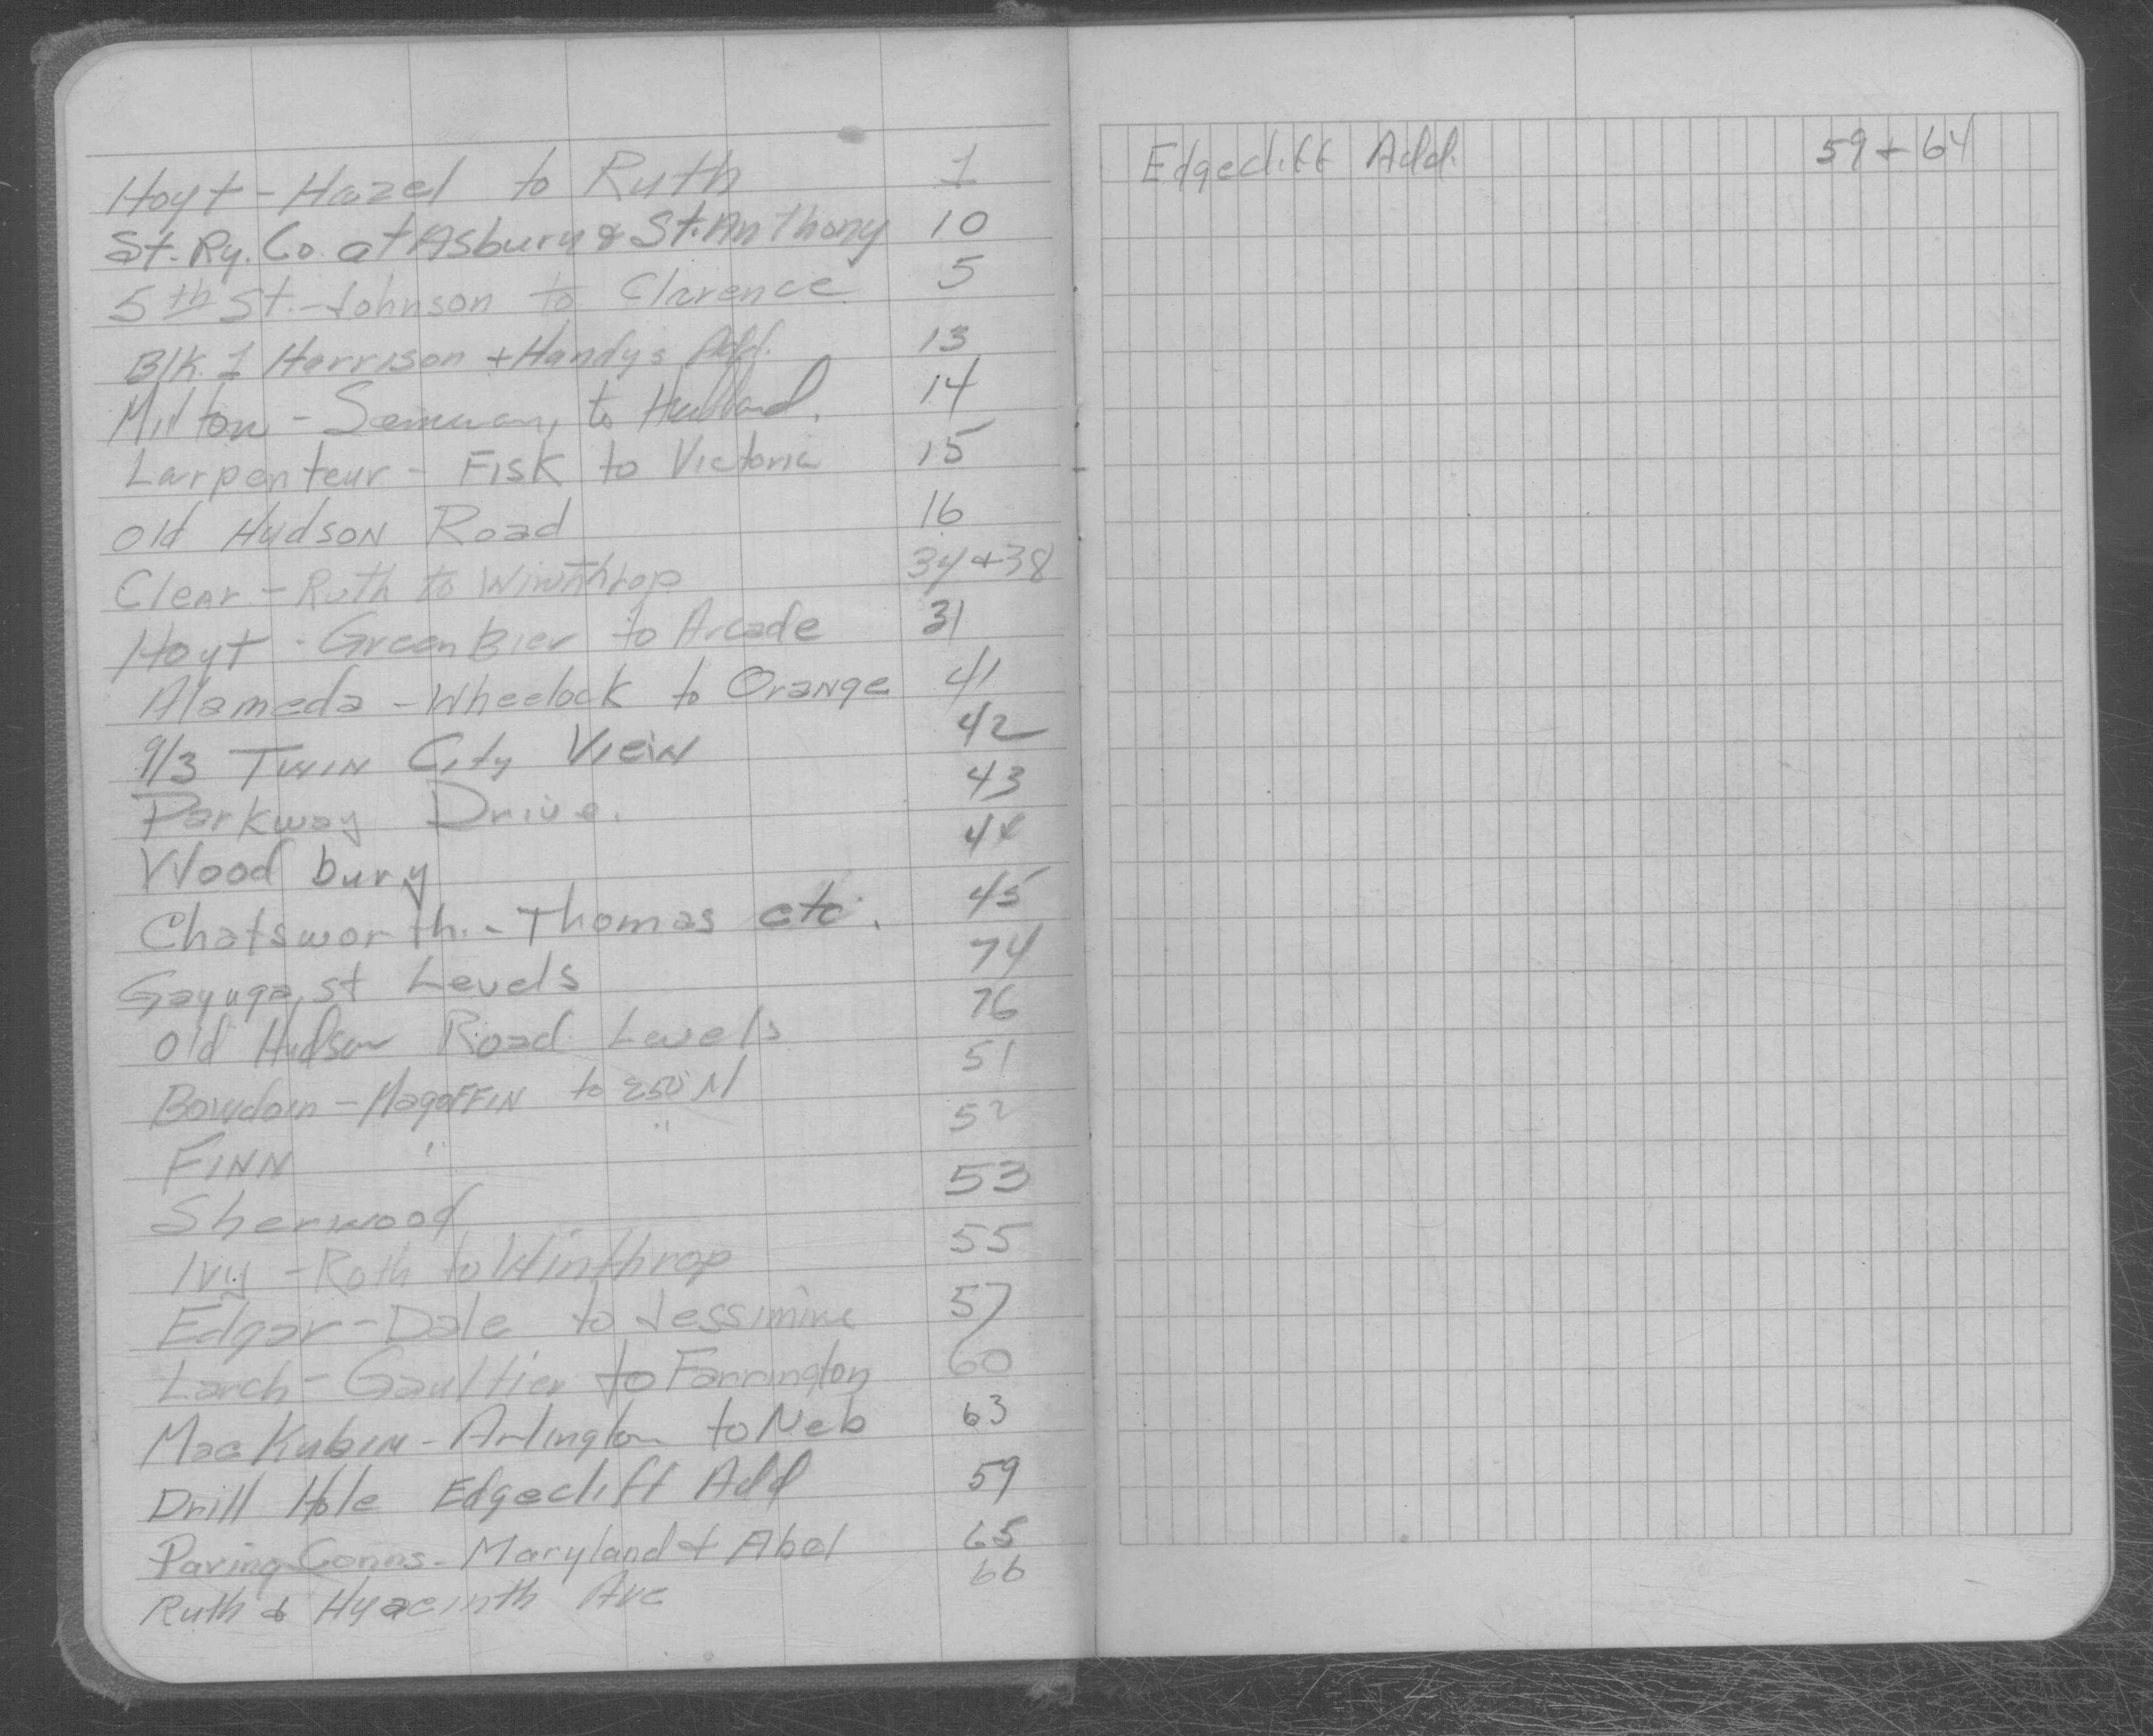 Hoyt - Hazel to Ruth 1
St. Ry. Co. at Asbury & St. Anthony 10
5th St. - Johnson to Clarence 5
Blk. 1 Harrison + Handys Add. 13
Milton - to Hubbard. 14
Larpenteur - Fisk to Victoria 15
Old Hudson Road 16
Clear - Ruth to Winthrop 34 + 38
Hoyt - Green Bier to Arcade 31
Alameda - Wheelock to Orange 41
9/3 Twin City View 42
Parkway Drive. 43
Wood bury 44
Chatsworth. - Thomas etc. 45
Gayuga, st Levels 74
Old Hudson Road Levels 76
Bowdoin - Magoffin to 250' N 51
Finn " " 52
Sherwood 53
Ivy - Ruth to Winthrop 55
Edgar - Dale to Jessimine 57
Larch - Gaultier to Farrington 60
Mac Kubin - Arlington to Neb 63
Drill Hole Edgecliff Add 59
Paving Conns. - Maryland + Abel 65
Ruth & Hyacinth Ave 66
Edgecliff Add. 59 + 64